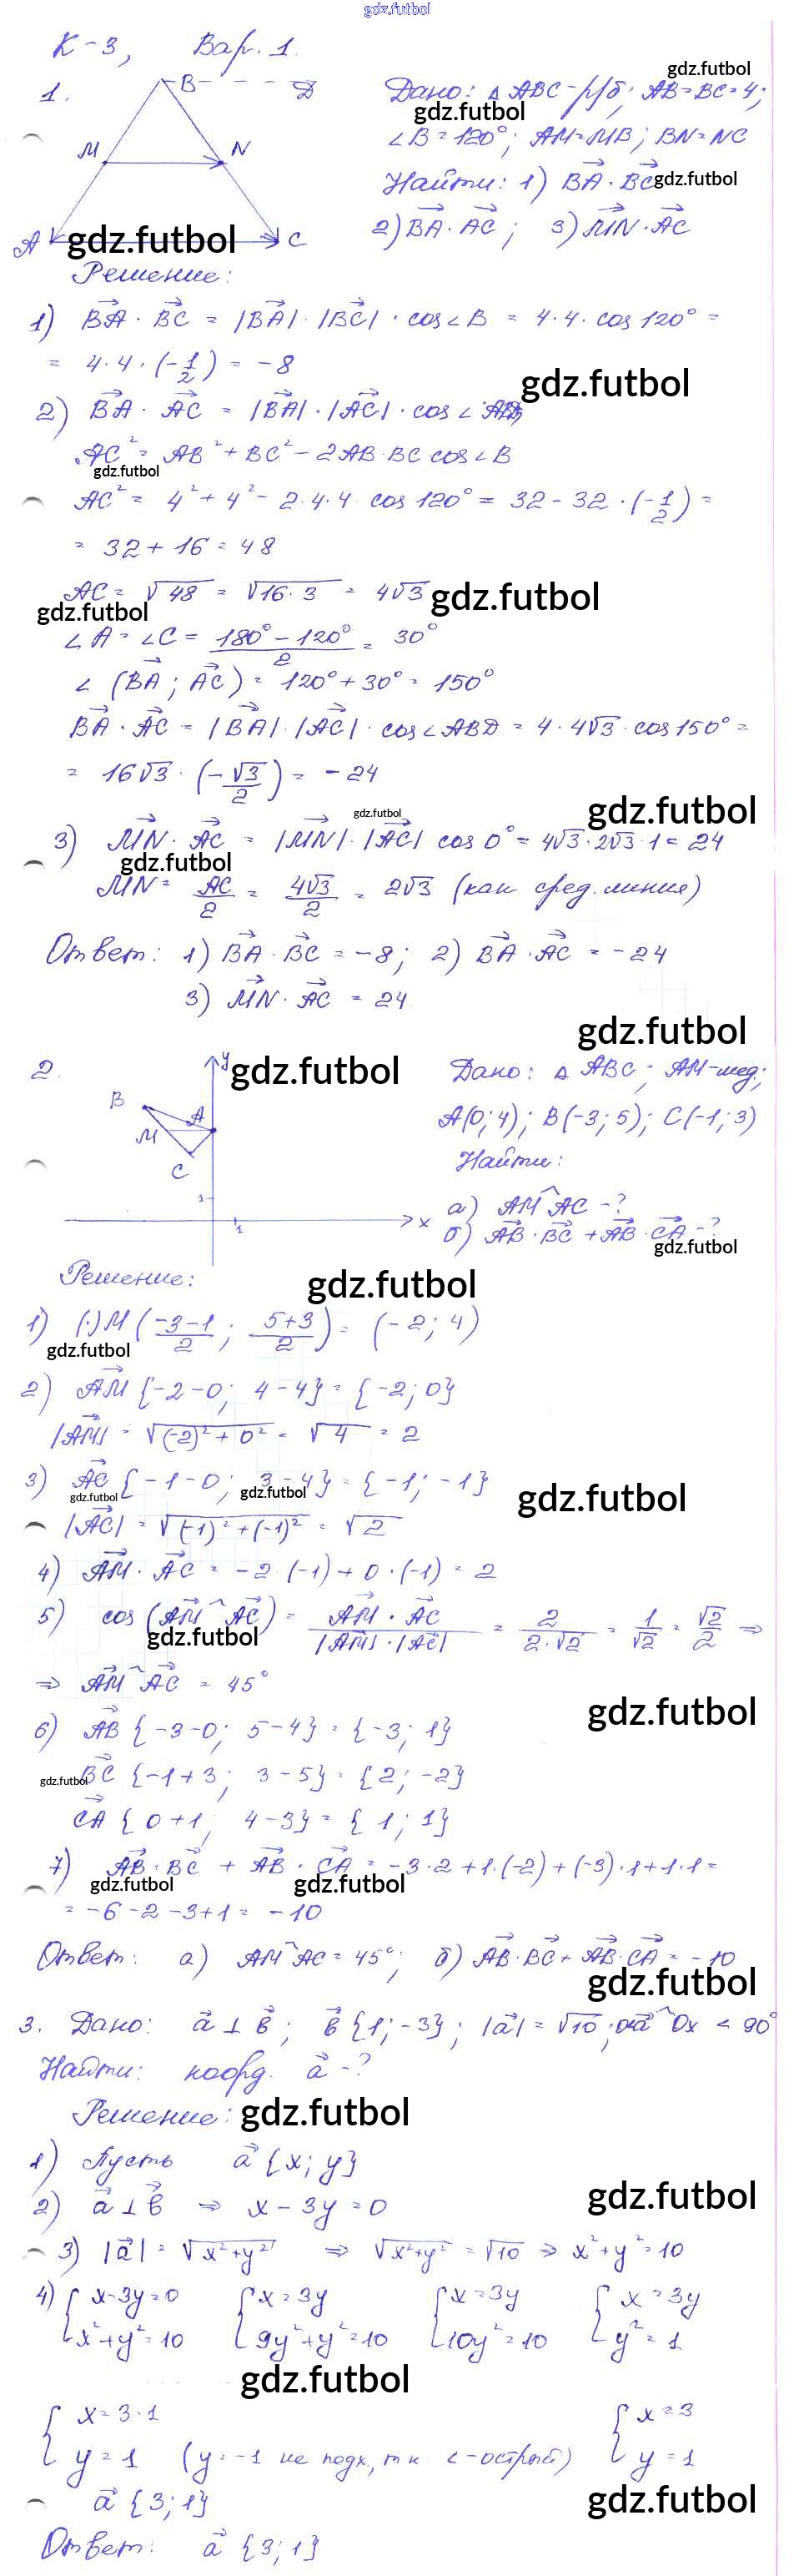 gdz.futbol
К-3, Вар. 1.
gdz.futbol
1. B D Дано: △ ABC - р/б; AB = BC = 4;
gdz.futbol
∠B = 120°; AM = MB; BN = NC
M N
Найти: 1) BA · BC gdz.futbol
A gdz.futbol C 2) BA · AC ; 3) MN · AC
Решение:
1) BA · BC = |BA| · |BC| · cos∠B = 4·4·cos 120° =
= 4·4·(-1/2) = -8
gdz.futbol
2) BA · AC = |BA| · |AC| · cos∠ABD
AC² = AB² + BC² - 2AB·BC cos∠B
gdz.futbol
AC² = 4² + 4² - 2·4·4 cos 120° = 32 - 32·(-1/2) =
= 32 + 16 = 48
AC = √48 = √16·3 = 4√3 gdz.futbol
gdz.futbol
∠A = ∠C = (180° - 120°)/2 = 30°
∠(BA; AC) = 120° + 30° = 150°
BA · AC = |BA| · |AC| · cos∠ABD = 4·4√3·cos 150° =
= 16√3 · (-√3/2) = -24
gdz.futbol
gdz.futbol
3) MN · AC = |MN| · |AC| cos 0° = 4√3·2√3·1 = 24
gdz.futbol
MN = AC/2 = 4√3/2 = 2√3 (как сред. линия)
Ответ: 1) BA · BC = -8; 2) BA · AC = -24
3) MN · AC = 24
gdz.futbol
2. y gdz.futbol Дано: △ ABC; AM-мед;
B A M C A(0;4); B(-3;5); C(-1;3)
Найти:
1 а) AM^AC - ?
1 x б) AB · BC + AB · CA - ?
gdz.futbol
Решение: gdz.futbol
1) (·) M ((-3-1)/2; (5+3)/2) = (-2; 4)
gdz.futbol
2) AM {-2-0; 4-4} = {-2; 0}
|AM| = √(-2)² + 0² = √4 = 2
3) AC {-1-0; 3-4} = {-1; -1}
gdz.futbol gdz.futbol gdz.futbol
|AC| = √(-1)² + (-1)² = √2
4) AM · AC = -2·(-1) + 0·(-1) = 2
5) cos (AM^AC) = AM · AC/|AM|·|AC| = 2/2·√2 = 1/√2 = √2/2 ⇒
gdz.futbol
⇒ AM^AC = 45°
gdz.futbol
6) AB {-3-0; 5-4} = {-3; 1}
gdz.futbol BC {-1+3; 3-5} = {2; -2}
CA {0+1; 4-3} = {1; 1}
7) AB · BC + AB · CA = -3·2 + 1·(-2) + (-3)·1 + 1·1 =
gdz.futbol gdz.futbol
= -6 - 2 - 3 + 1 = -10
Ответ: а) AM^AC = 45°; б) AB · BC + AB · CA = -10
gdz.futbol
3. Дано: a ⊥ b; b {1; -3}; |a| = √10; a^Ox < 90°
Найти: коорд. a - ?
Решение: gdz.futbol
1) Пусть a {x; y}
gdz.futbol
2) a ⊥ b ⇒ x - 3y = 0
3) |a| = √x²+y² ⇒ √x²+y² = √10 ⇒ x²+y² = 10
4) { x-3y=0 { x=3y { x=3y { x=3y
x²+y²=10 9y²+y²=10 10y²=10 y²=1
gdz.futbol
{ x = 3·1 { x = 3
y = 1 (y = -1 не подх, т к ∠-острый) y = 1
a {3; 1} gdz.futbol
Ответ: a {3; 1}